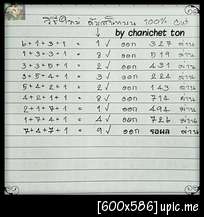 วิธีใหม่ ดับสิบบน 100% Cut
by chanichet ton
6+1+3+1 = 1 ✓ ออก 327 ผ่าน
1+3+3+1 = 8 ✓ ออก 519 ผ่าน
1+3+5+4 = 3 ✓ ออก 431 ผ่าน
3+5+4+1 = 3 ✓ ออก 224 ผ่าน
5+4+2+1 = 2 ✓ ออก 143 ผ่าน
4+2+1+1 = 8 ✓ ออก 714 ผ่าน
2+1+7+1 = 1 ✓ ออก 494 ผ่าน
1+7+4+7 = 9 ✓ ออก 726 ผ่าน
7+4+7+1 = 9 ✓ ออก รอผล ผ่าน
[600x586] upic.me